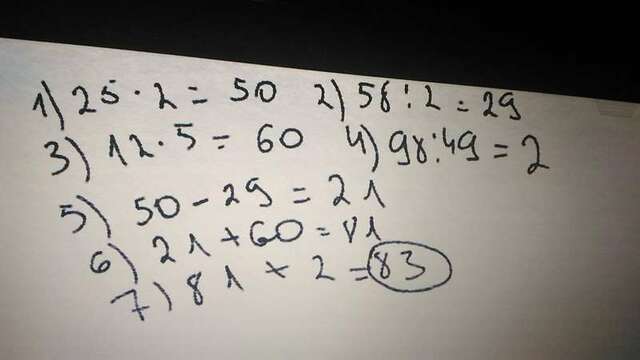 1) 25 · 2 = 50 2) 58 : 2 = 29
3) 12 · 5 = 60 4) 98 : 49 = 2
5) 50 - 29 = 21
6) 21 + 60 = 81
7) 81 + 2 = 83